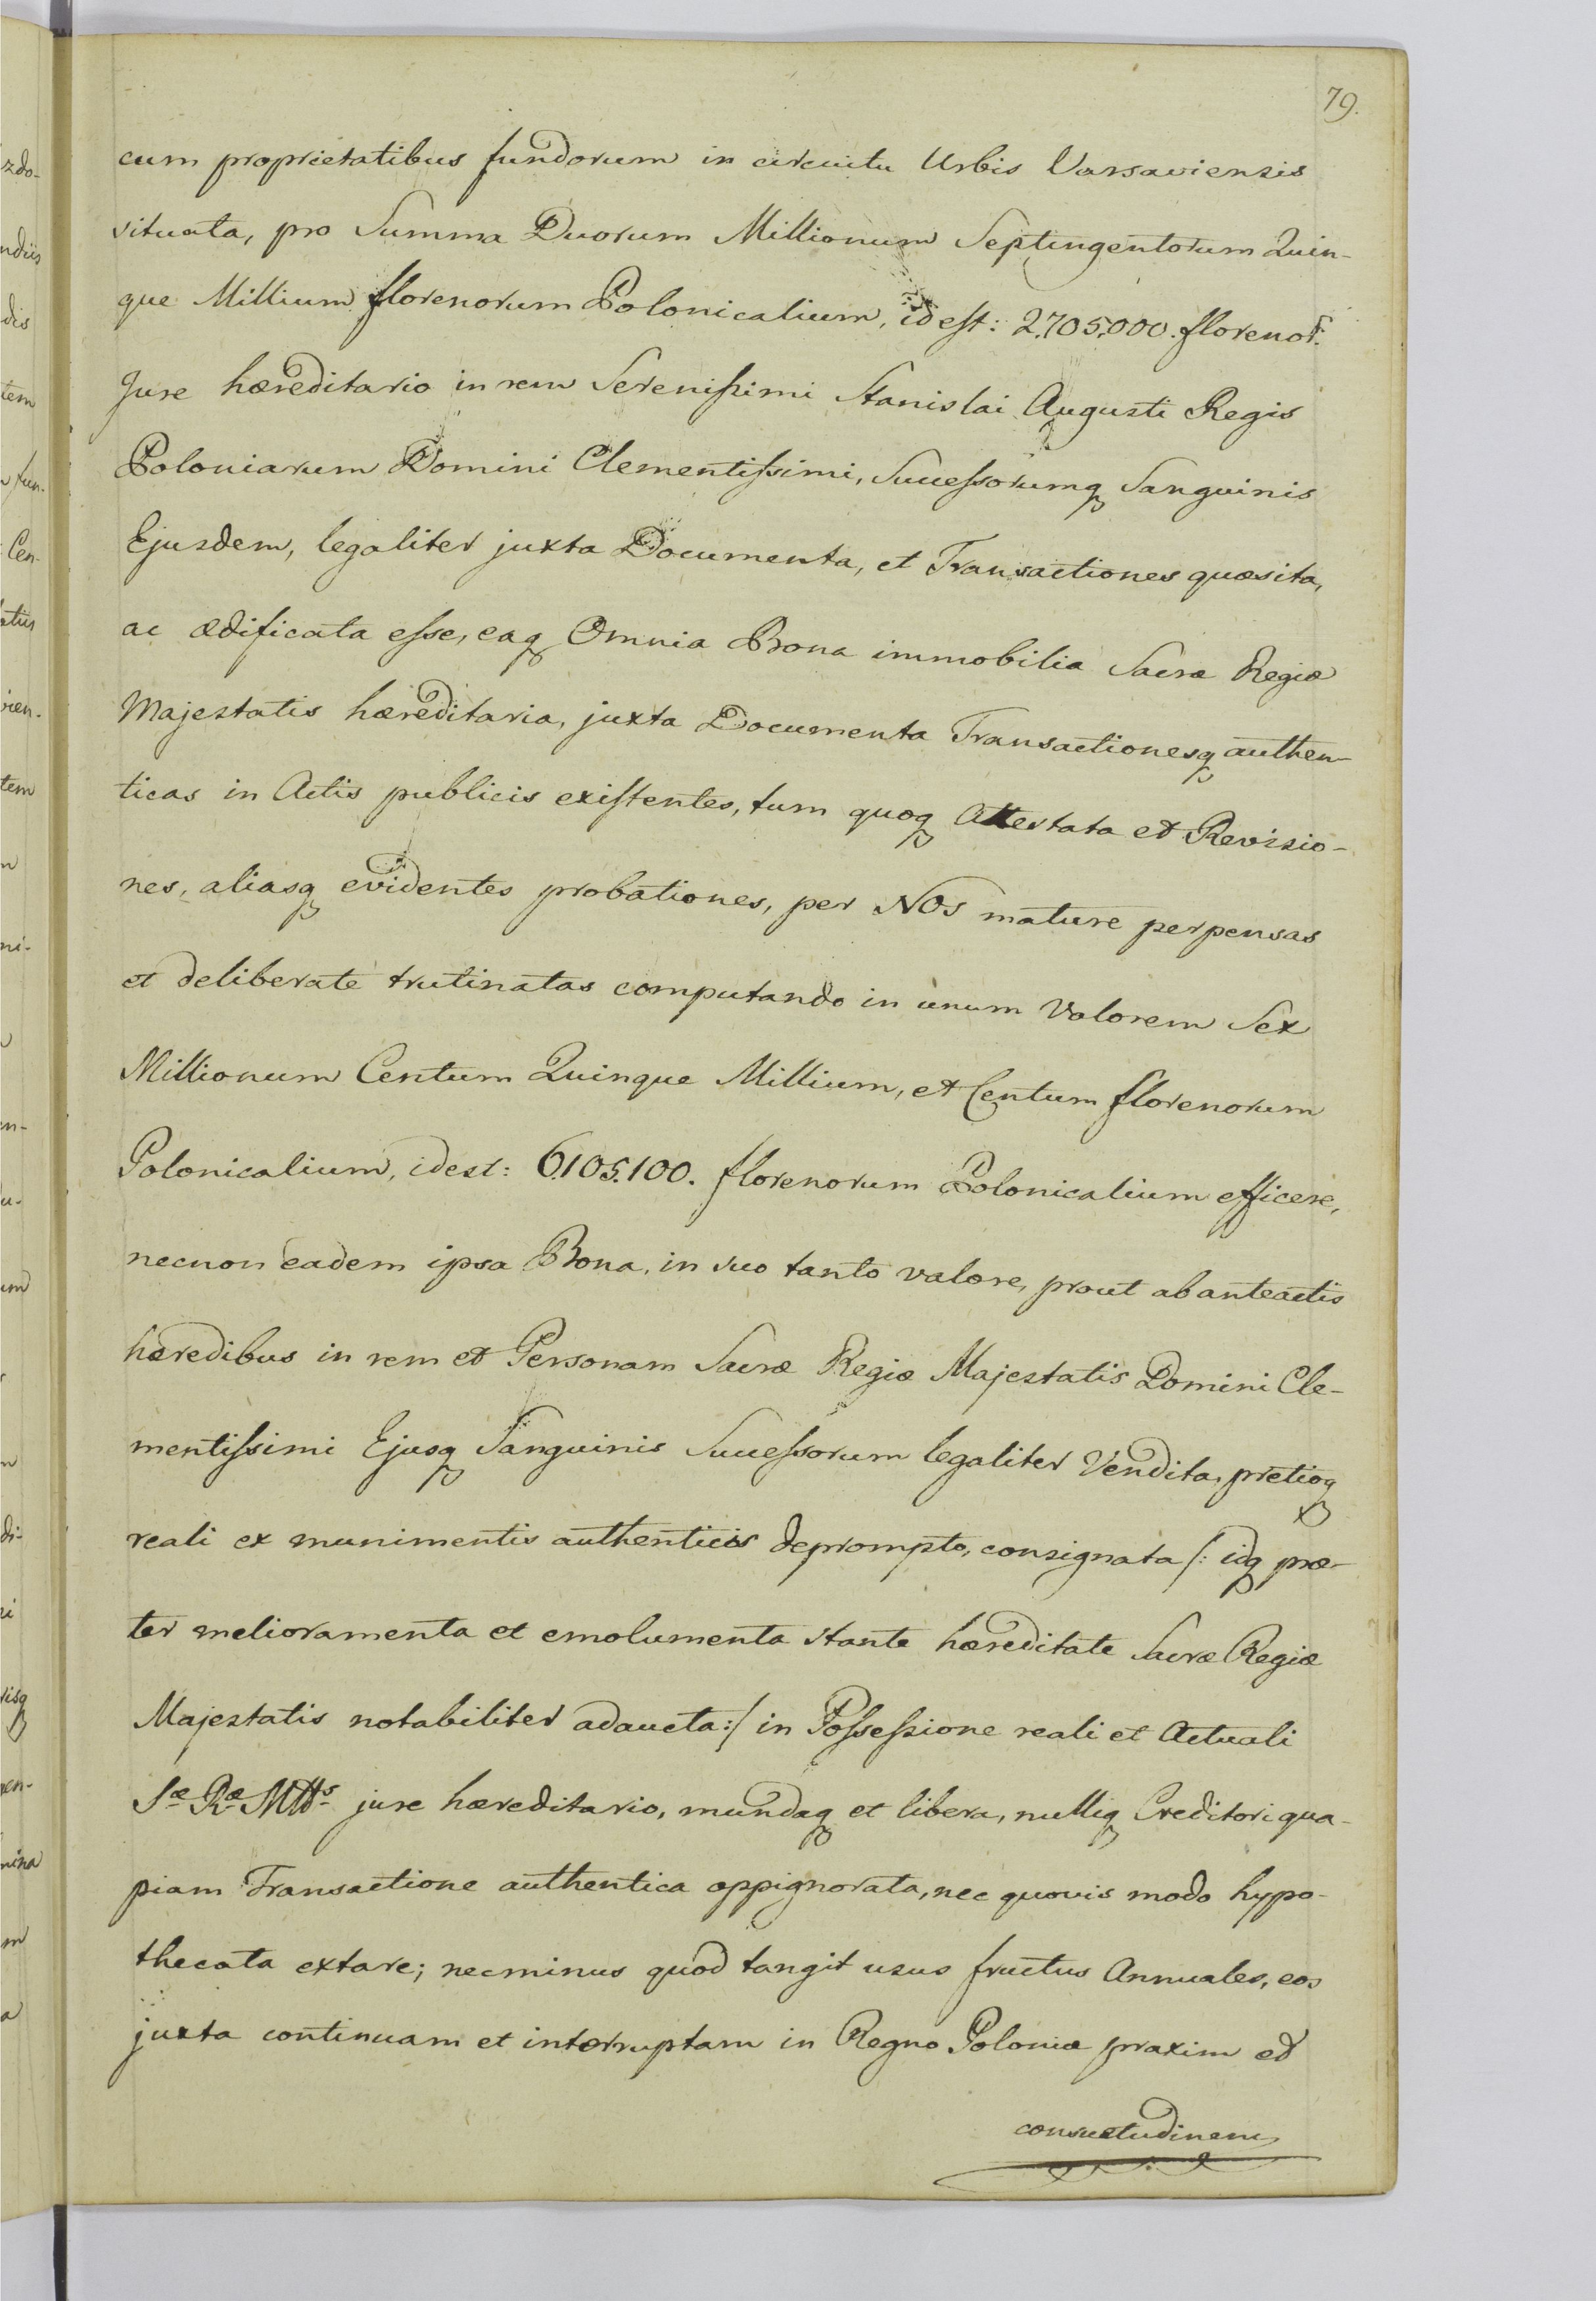 79.
cum proprietatibus fundorum in circuitu Urbis Varsaviensis
situata, pro Summa Duorum Millionum Septingentorum Quin-
que Millium florenorum Polonicalium, id est: 2.705.000. florenor:
Jure hæreditario in rem Serenissimi Stanislai Augusti Regis
Poloniarum Domini Clementissimi, Successorumq Sanguinis
Ejusdem, legaliter juxta Documenta, et Transactiones quæsita,
ac ædificata esse, eaq Omnia Bona immobilia Sacræ Regiæ
Majestatis hæreditaria, juxta Documenta Transactionesq authen-
ticas in Actis publicis existentes, tum quoq Attestata et Revisio-
nes, aliasq evidentes probationes, per NOS mature perpensas
et deliberate trutinatas computando in unum Valorem Sex
Millionum Centum Quinque Millium, et Centum florenorum
Polonicalium, idest: 6.105.100. florenorum Polonicalium efficere,
necnon eadem ipsa Bona, in suo tanto valore, prout ab anteactis
hæredibus in rem et Personam Sacræ Regiæ Majestatis Domini Cle-
mentissimi Ejusq Sanguinis Successorum legaliter Vendita, pretioq
reali ex munimentis authenticis deprompto, consignata /: idq præ-
ter melioramenta et emolumenta stante hæreditate Sacræ Regiæ
Majestatis notabiliter adaucta :/ in Possessione reali et Actuali
Sæ Ræ Mtts jure hæreditario, mundaq et libera, nulliq Creditori qua-
piam Transactione authentica oppignorata, nec quovis modo hypo-
thecata extare; necminus quod tangit usus fructus Annuales, eos
juxta continuam et interruptam in Regno Poloniæ praxim et
consuetudinem